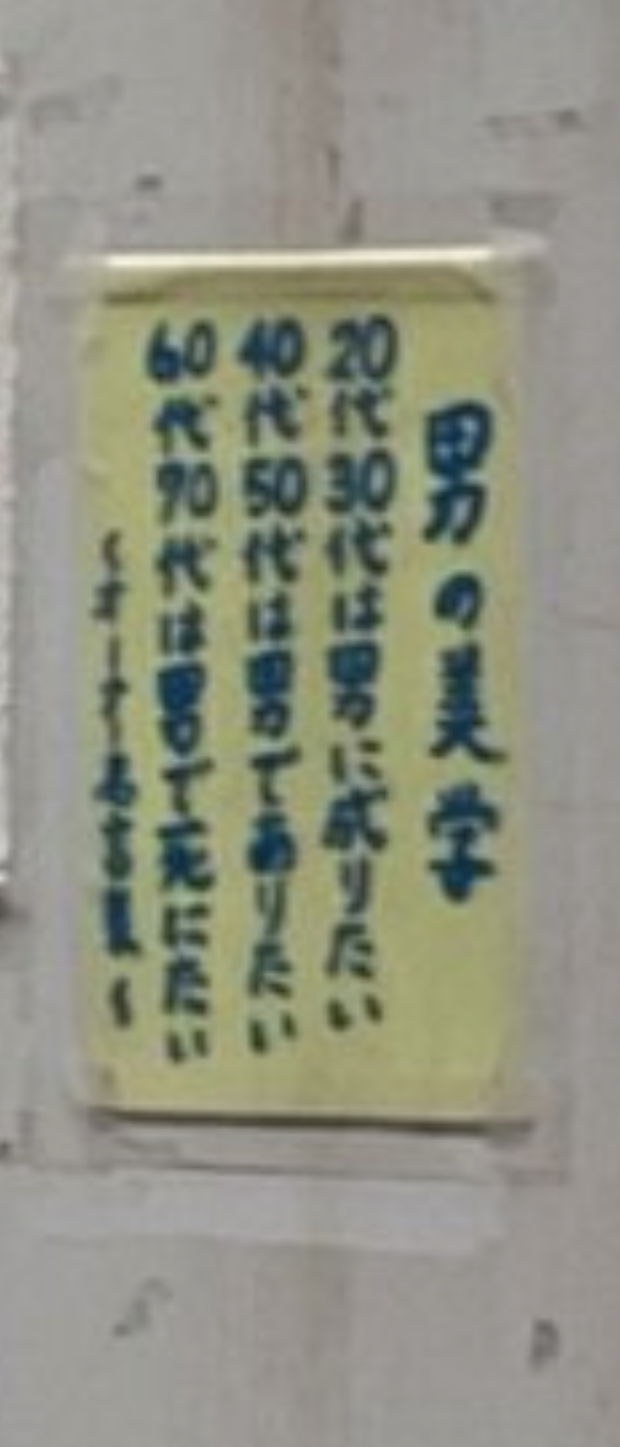 男の美学
20代30代は男に成りたい
40代50代は男でありたい
60代70代は男で死にたい
名古屋